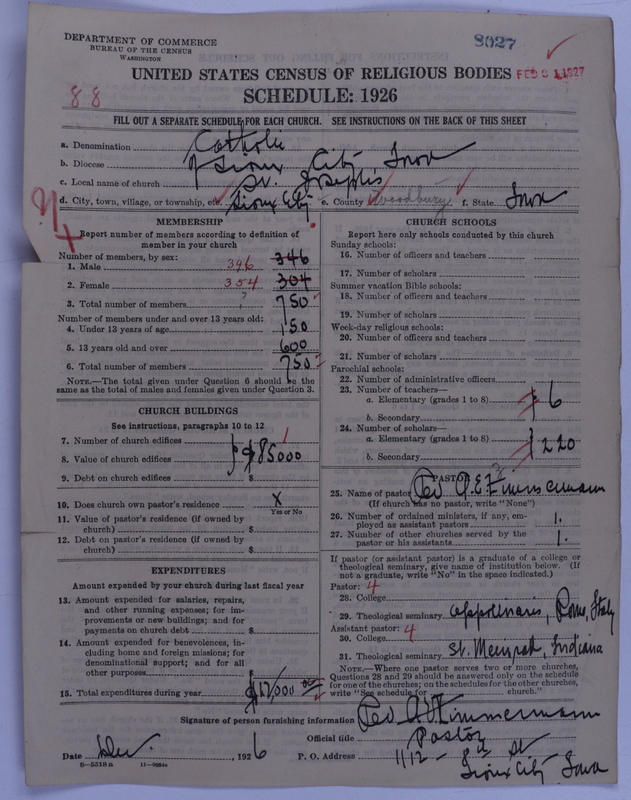 DEPARTMENT OF COMMERCE
BUREAU OF THE CENSUS
WASHINGTON
8027
UNITED STATES CENSUS OF RELIGIOUS BODIES
FEB 1927
SCHEDULE: 1926
88
FILL OUT A SEPARATE SCHEDULE FOR EACH CHURCH. SEE INSTRUCTIONS ON THE BACK OF THIS SHEET
a. Denomination Catholic
b. Diocese of Sioux City Iowa
c. Local name of church St. Josephs
d. City, town, village, or township, etc. Sioux City e. County Woodbury f. State Iowa
MEMBERSHIP
Report number of members according to definition of
member in your church
Number of members, by sex:
1. Male 396 346
2. Female 354 304
3. Total number of members 750
Number of members under and over 13 years old:
4. Under 13 years of age 150
5. 13 years old and over 600
6. Total number of members 750
NOTE.—The total given under Question 6 should be the
same as the total of males and females given under Question 3.
CHURCH BUILDINGS
See instructions, paragraphs 10 to 12
7. Number of church edifices
8. Value of church edifices $85000
9. Debt on church edifices $
10. Does church own pastor's residence X
Yes or No
11. Value of pastor's residence (if owned by
church) $
12. Debt on pastor's residence (if owned by
church) $
EXPENDITURES
Amount expended by your church during last fiscal year
13. Amount expended for salaries, repairs,
and other running expenses; for im-
provements or new buildings; and for
payments on church debt $
14. Amount expended for benevolences, in-
cluding home and foreign missions; for
denominational support; and for all
other purposes
15. Total expenditures during year $17,000 00
CHURCH SCHOOLS
Report here only schools conducted by this church
Sunday schools:
16. Number of officers and teachers
17. Number of scholars
Summer vacation Bible schools:
18. Number of officers and teachers
19. Number of scholars
Week-day religious schools:
20. Number of officers and teachers
21. Number of scholars
Parochial schools:
22. Number of administrative officers
23. Number of teachers—
a. Elementary (grades 1 to 8) 6
b. Secondary
24. Number of scholars—
a. Elementary (grades 1 to 8) 220
b. Secondary
PASTOR
25. Name of pastor Rev A.E. Zimmermann
(If church has no pastor, write "None")
26. Number of ordained ministers, if any, em-
ployed as assistant pastors 1.
27. Number of other churches served by the
pastor or his assistants 1.
If pastor (or assistant pastor) is a graduate of a college or
theological seminary, give name of institution below. (If
not a graduate, write "No" in the space indicated.)
Pastor: 4
28. College
29. Theological seminary Appolinaris, Rome, Italy
Assistant pastor: 4
30. College
31. Theological seminary St. Meinrad, Indiana
NOTE.—Where one pastor serves two or more churches,
Questions 28 and 29 should be answered only on the schedule
for one of the churches; on the schedules for the other churches,
write "See schedule for church."
Signature of person furnishing information Rev A.E. Zimmermann
Official title Pastor
Date Dec. , 1926 P. O. Address 1112 – 8th St
Sioux City Iowa
8—5518a 11—9984